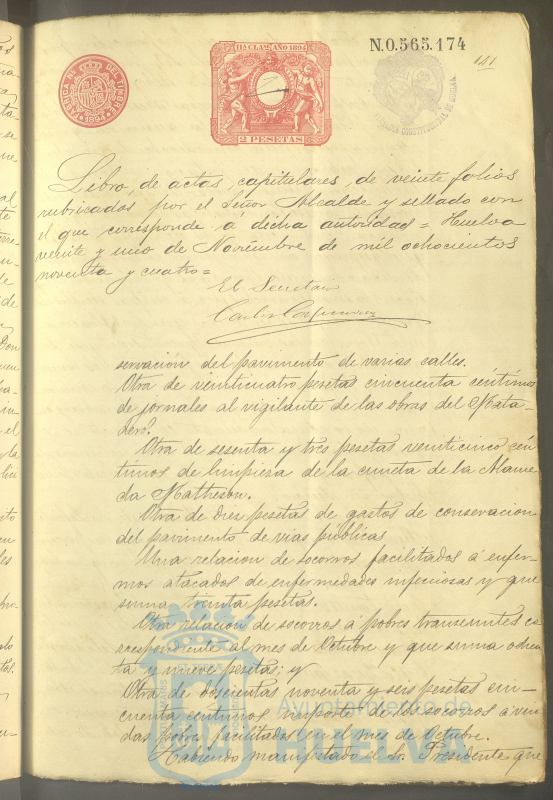 11ª CLAˢᵉ AÑO 1894
N.0.565.174
FABRICA NACIONAL DEL TIMBRE
1894
2 PESETAS
CONSTITUCIONAL DE HUELVA
Libro de actas capitulares, de veinte folios
rubricados por el Señor Alcalde y sellado con
el que corresponde á dicha autoridad = Huelva
veinte y uno de Noviembre de mil ochocientos
noventa y cuatro =
El Secretario
servacion del pavimento de varias calles.
Otra de veinticuatro pesetas cincuenta céntimos
de jornales al vigilante de las obras del Mata-
dero.
Otra de sesenta y tres pesetas veinticinco cén
timos de limpieza de la cuneta de la Alame
da Matheson.
Otra de diez pesetas de gastos de conservacion
del pavimento de vias publicas
Una relacion de socorros facilitados á enfer-
mos atacados de enfermedades infecciosas y que
suma treinta pesetas.
Otra relacion de socorros á pobres transeuntes co
rrespondiente al mes de Octubre y que suma ochen
ta y nueve pesetas; y
Otra de doscientas noventa y seis pesetas cin-
cuenta centimos importe de los socorros á viu
das pobres facilitados en el mes de Octubre.
Habiendo manifestado el Sr. Presidente que
Ayuntamiento de
HUELVA